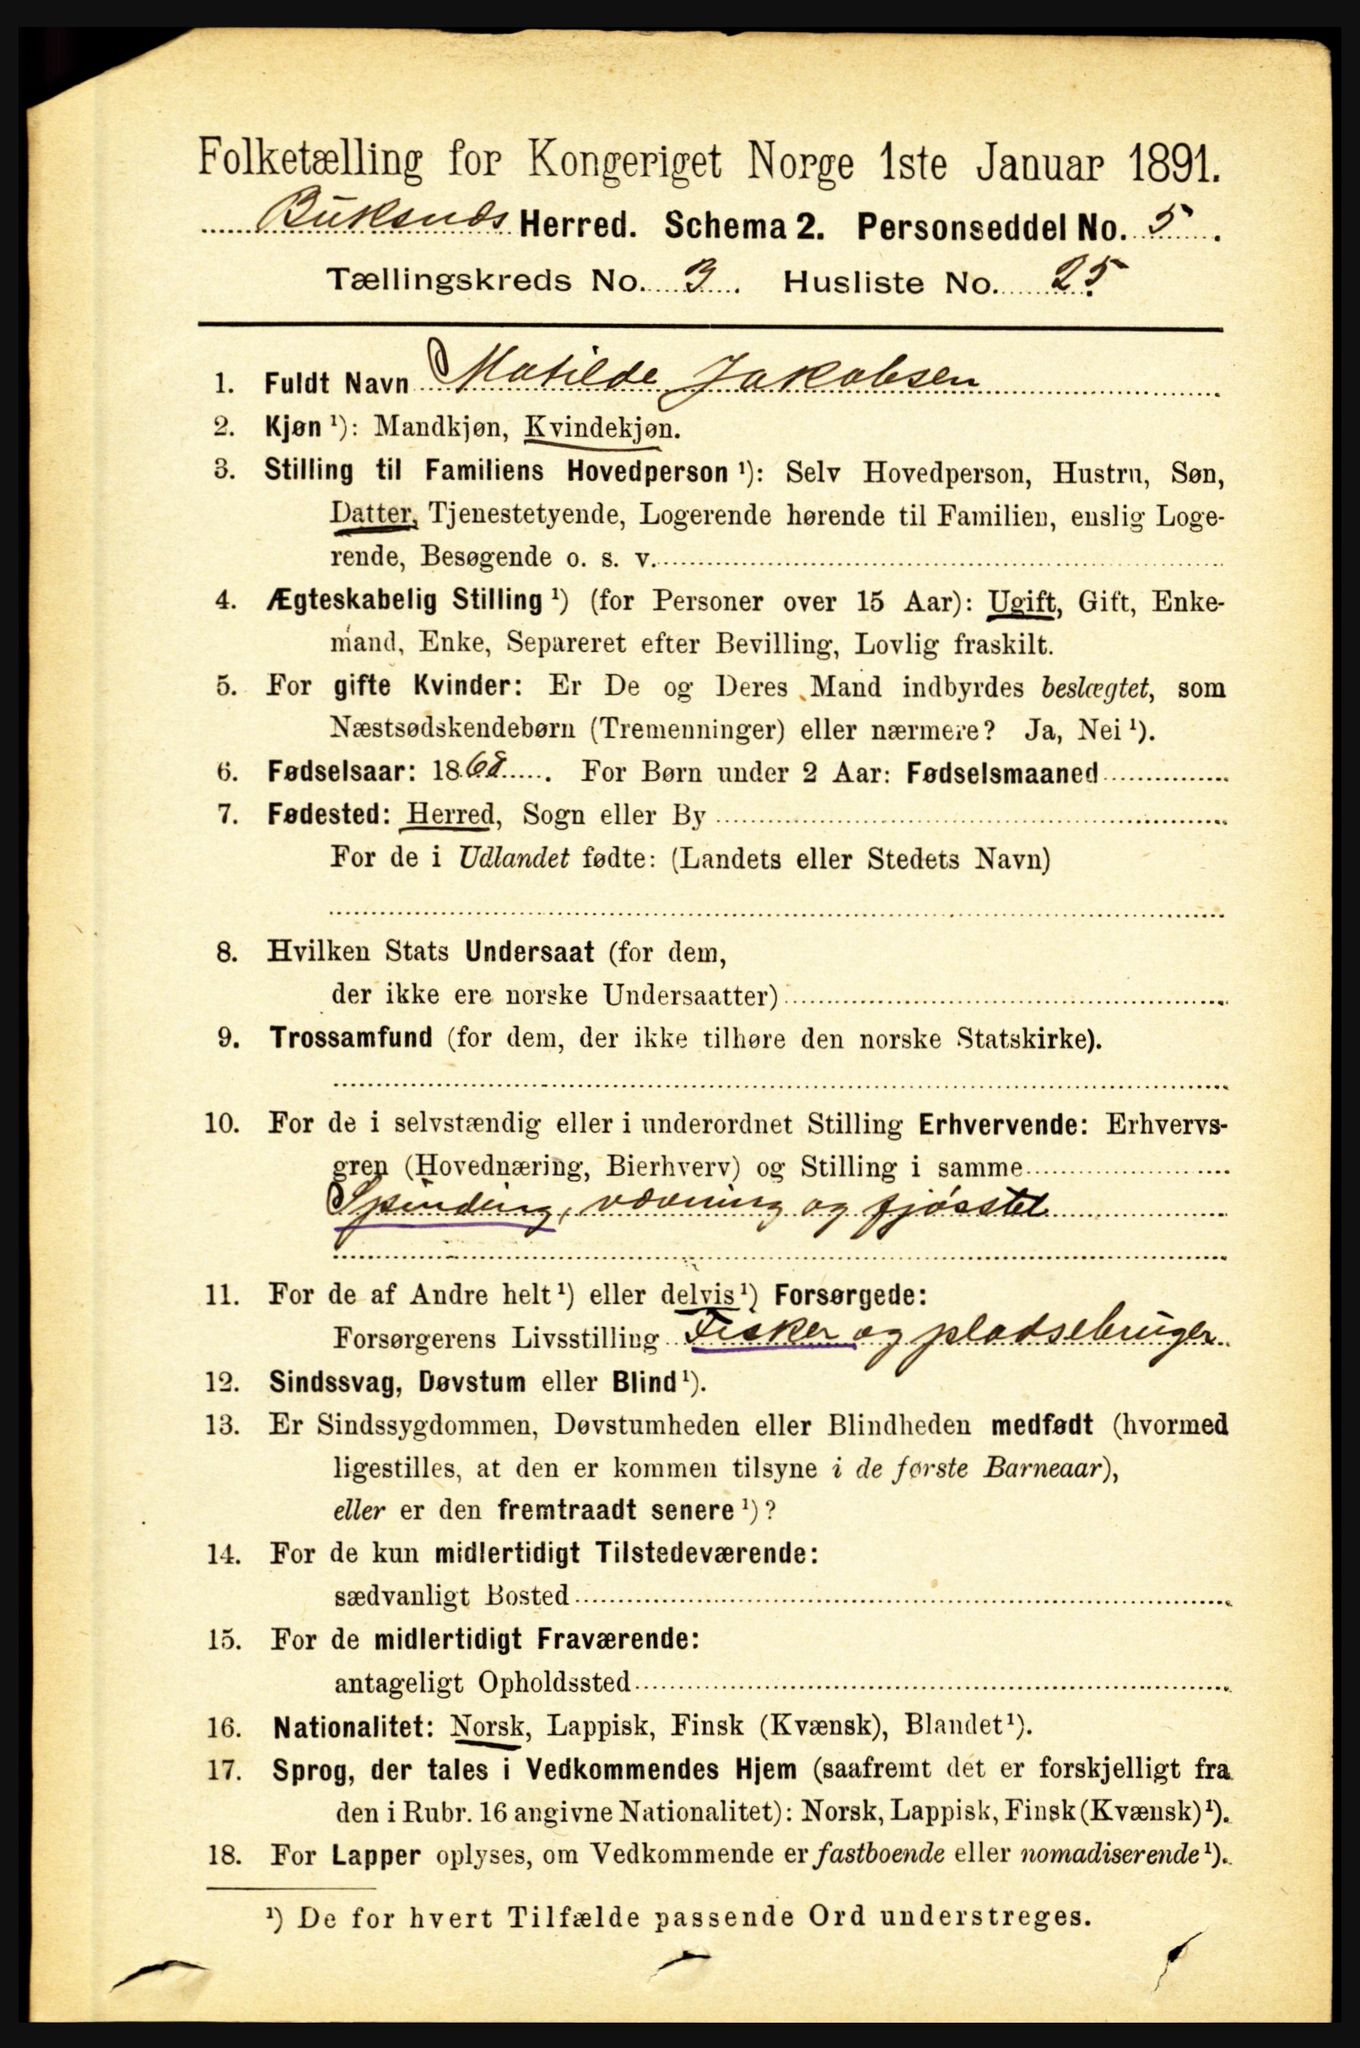 Folketælling for Kongeriget Norge 1ste Januar 1891.
Buksnæs Herred. Schema 2. Personseddel No. 5.
Tællingskreds No. 3. Husliste No. 25.
1. Fuldt Navn Matilde Jakobsen
2. Kjøn ¹): Mandkjøn, Kvindekjøn.
3. Stilling til Familiens Hovedperson ¹): Selv Hovedperson, Hustru, Søn,
Datter, Tjenestetyende, Logerende hørende til Familien, enslig Loge-
rende, Besøgende o. s. v.
4. Ægteskabelig Stilling ¹) (for Personer over 15 Aar): Ugift, Gift, Enke-
mand, Enke, Separeret efter Bevilling, Lovlig fraskilt.
5. For gifte Kvinder: Er De og Deres Mand indbyrdes beslægtet, som
Næstsødskendebørn (Tremenninger) eller nærmere? Ja, Nei ¹).
6. Fødselsaar: 1868. For Børn under 2 Aar: Fødselsmaaned
7. Fødested: Herred, Sogn eller By
For de i Udlandet fødte: (Landets eller Stedets Navn)
8. Hvilken Stats Undersaat (for dem,
der ikke ere norske Undersaatter)
9. Trossamfund (for dem, der ikke tilhøre den norske Statskirke).
10. For de i selvstændig eller i underordnet Stilling Erhvervende: Erhvervs-
gren (Hovednæring, Bierhverv) og Stilling i samme
Spinding, vævning og fjøsstel
11. For de af Andre helt ¹) eller delvis ¹) Forsørgede:
Forsørgerens Livsstilling Fisker og pladsebruger
12. Sindssvag, Døvstum eller Blind ¹).
13. Er Sindssygdommen, Døvstumheden eller Blindheden medfødt (hvormed
ligestilles, at den er kommen tilsyne i de første Barneaar),
eller er den fremtraadt senere ¹)?
14. For de kun midlertidigt Tilstedeværende:
sædvanligt Bosted
15. For de midlertidigt Fraværende:
antageligt Opholdssted
16. Nationalitet: Norsk, Lappisk, Finsk (Kvænsk), Blandet ¹).
17. Sprog, der tales i Vedkommendes Hjem (saafremt det er forskjelligt fra
den i Rubr. 16 angivne Nationalitet): Norsk, Lappisk, Finsk (Kvænsk) ¹).
18. For Lapper oplyses, om Vedkommende er fastboende eller nomadiserende ¹).
¹) De for hvert Tilfælde passende Ord understreges.